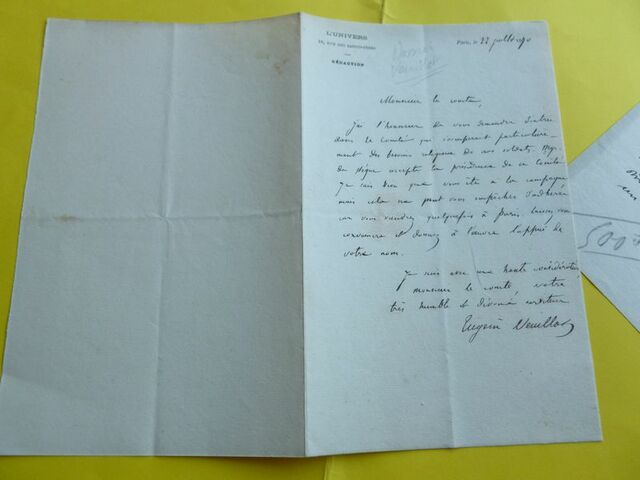 L'UNIVERS
10, RUE DES SAINTS-PÈRES
RÉDACTION
Paris, le 22 juillet
Dossier
Veuillot
Monsieur le comte,
J'ai l'honneur de vous demander d'entrer
dans le Comité qui s'occuperait particulière-
ment des besoins religieux de nos soldats. Mgr.
de Ségur accepte la présidence de ce Comité
Je sais bien que vous êtes à la campagne
mais cela ne peut vous empêcher d'adhérer
car vous viendrez quelquefois à Paris.
et donnez à l'œuvre l'appui de
votre nom.
Je suis avec une haute considération
monsieur le comte, votre
très humble et dévoué serviteur
Eugène Veuillot
500